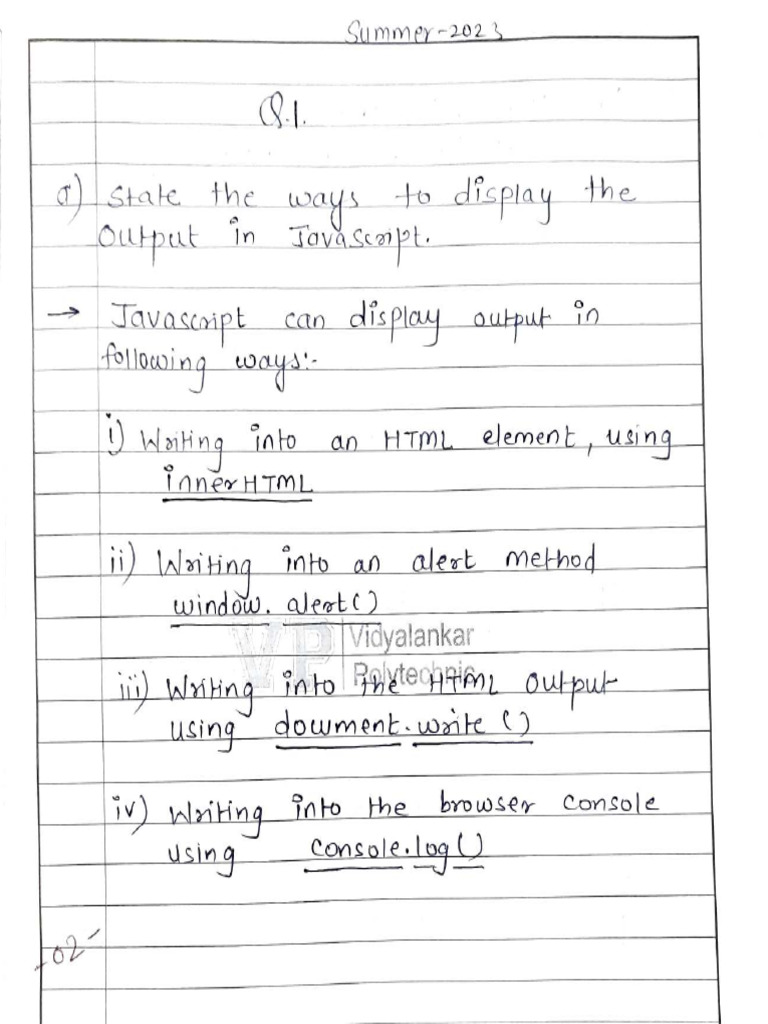 Summer-2023
Q.1.
a) State the ways to display the
Output in Javascript.
→ Javascript can display output in
following ways:-
i) Writing into an HTML element, using
innerHTML
ii) Writing into an alert method
window. alert()
Vidyalankar
Polytechnic
iii) Writing into the HTML output
using document.write ()
iv) Writing into the browser console
using console.log()
02